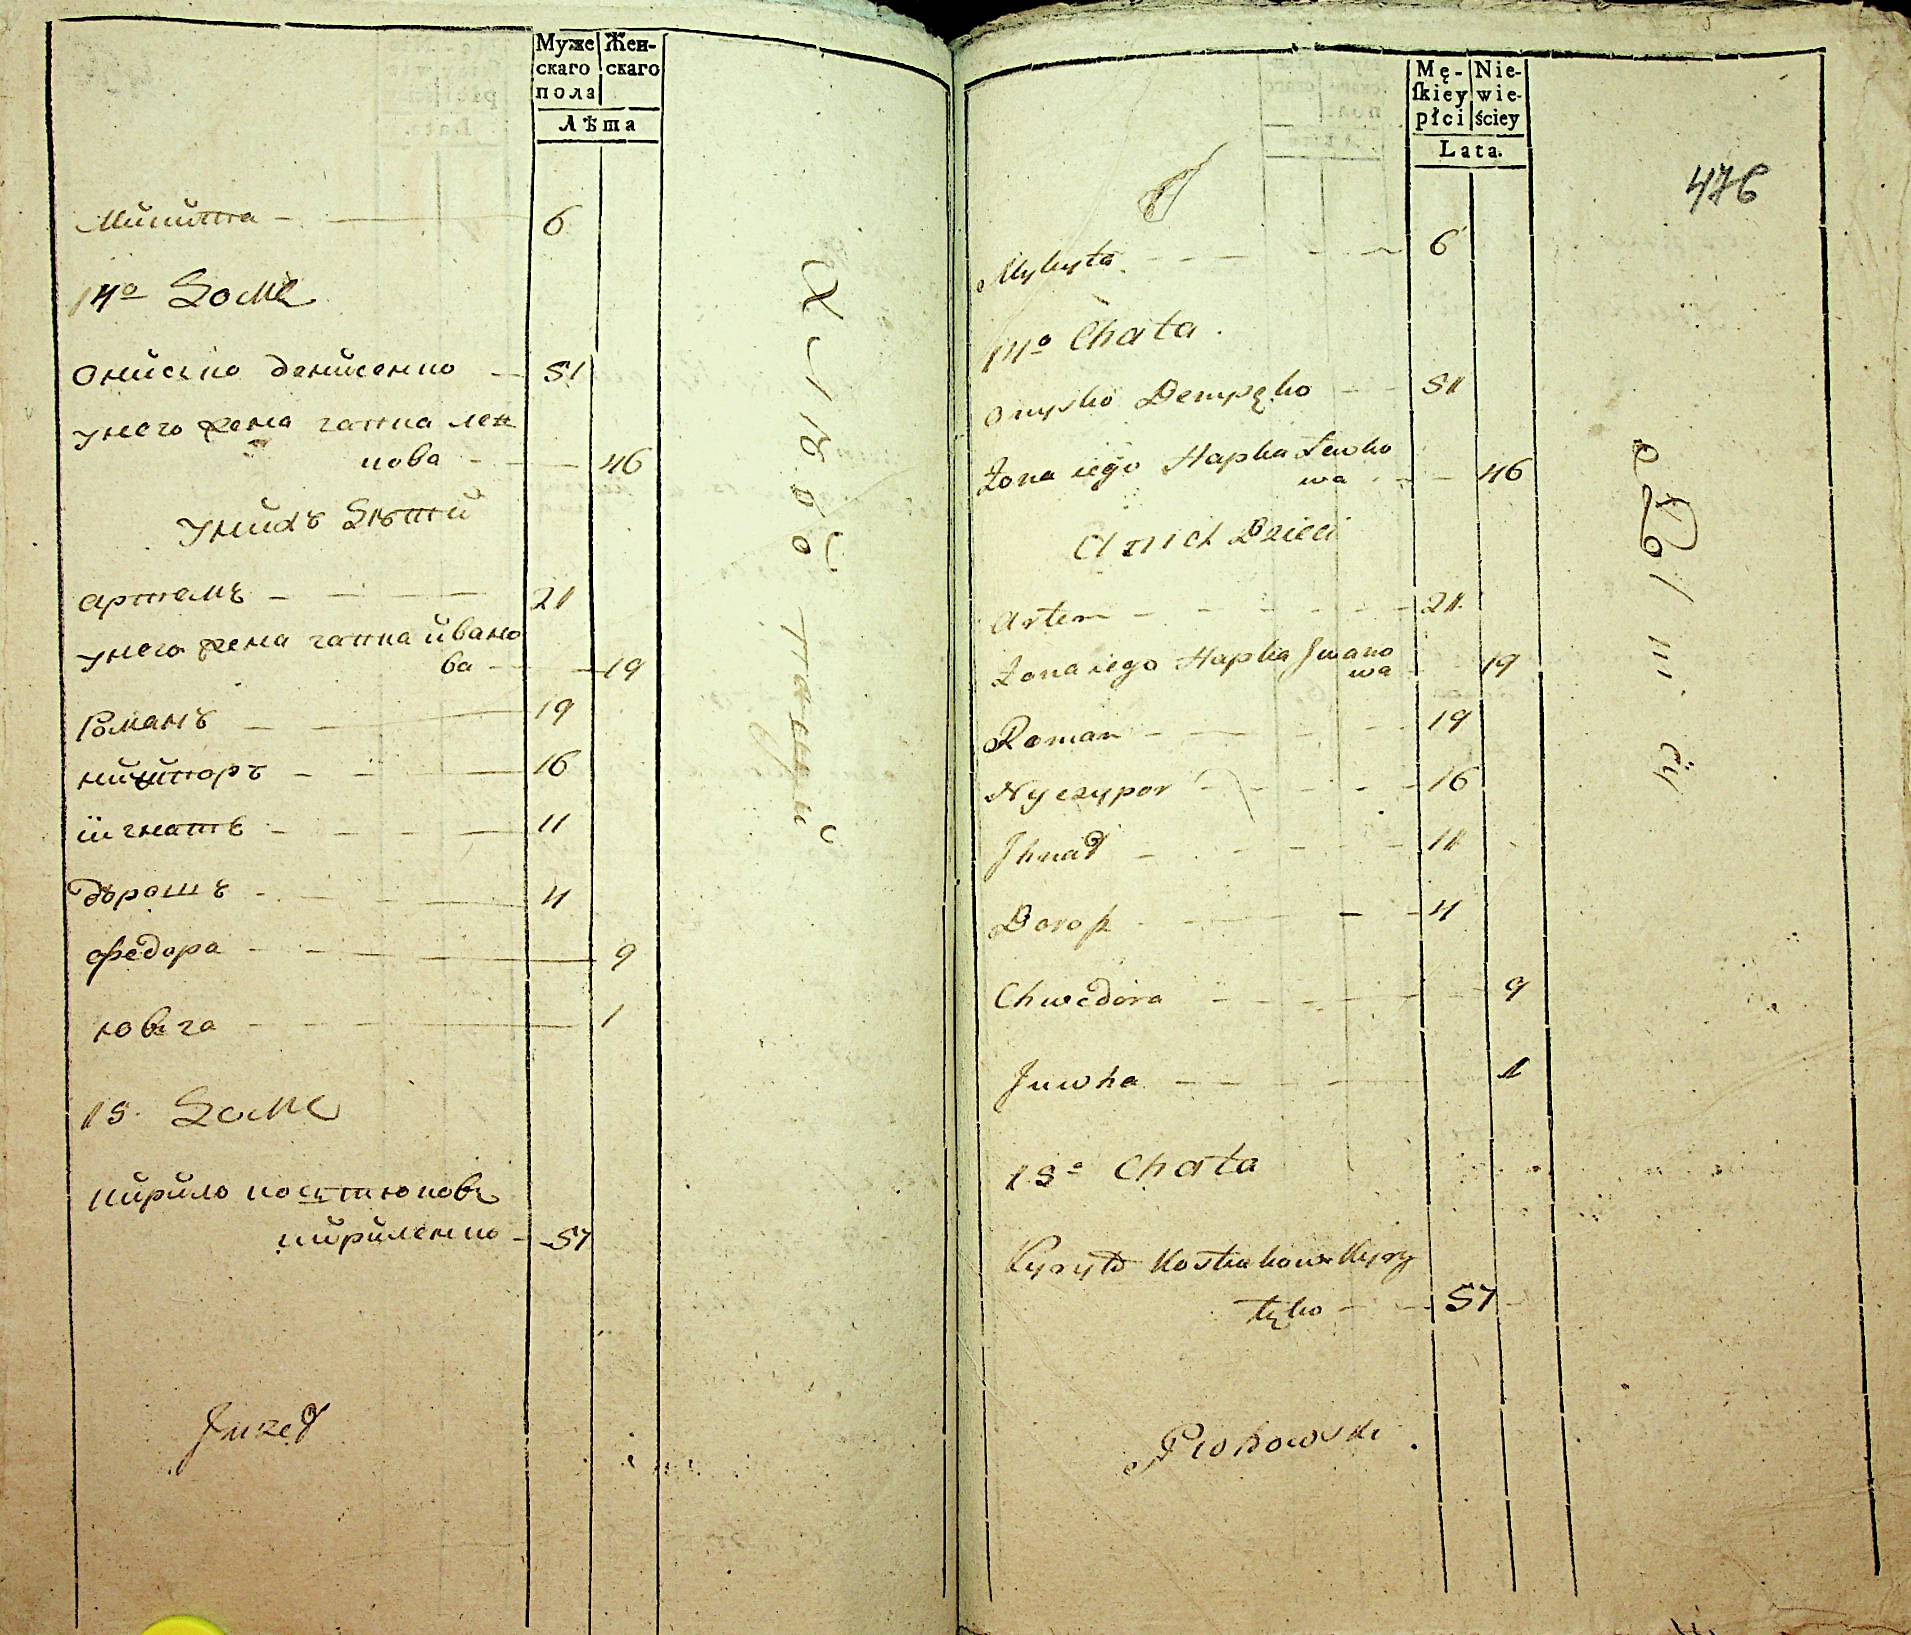 Муже Жен-
скаго скаго
пола
Лѣта
Микита 6
14º Доме
Ониско денисенко 51
унего жена гапка лев
кова 46
унихъ дѣти
артемъ 21
унего жена гапка ивано
ва 19
Романъ 19
ничипоръ 16
игнатъ 11
дорошъ 4
федора 9
ювга 1
15 Доме
кирило костюковъ
кириленко 57
Juzef
Mę- Nie-
ſkiey wie-
płci ściey
Lata.
476
Mykyta 6
14º Chata
Onysko Denysęko 51
Żona iego Hapka Lewko
wa 46
U nich Dzieci
Artem 21
Żona iego Hapka Jwano
wa 19
Roman 19
Nyczypor 16
Jhnat 11
Dorosz 4
Chwedora 9
Juwha 1
15º Chata
Kyryło Kostiukow Kyry
lęko 57
Piohowski